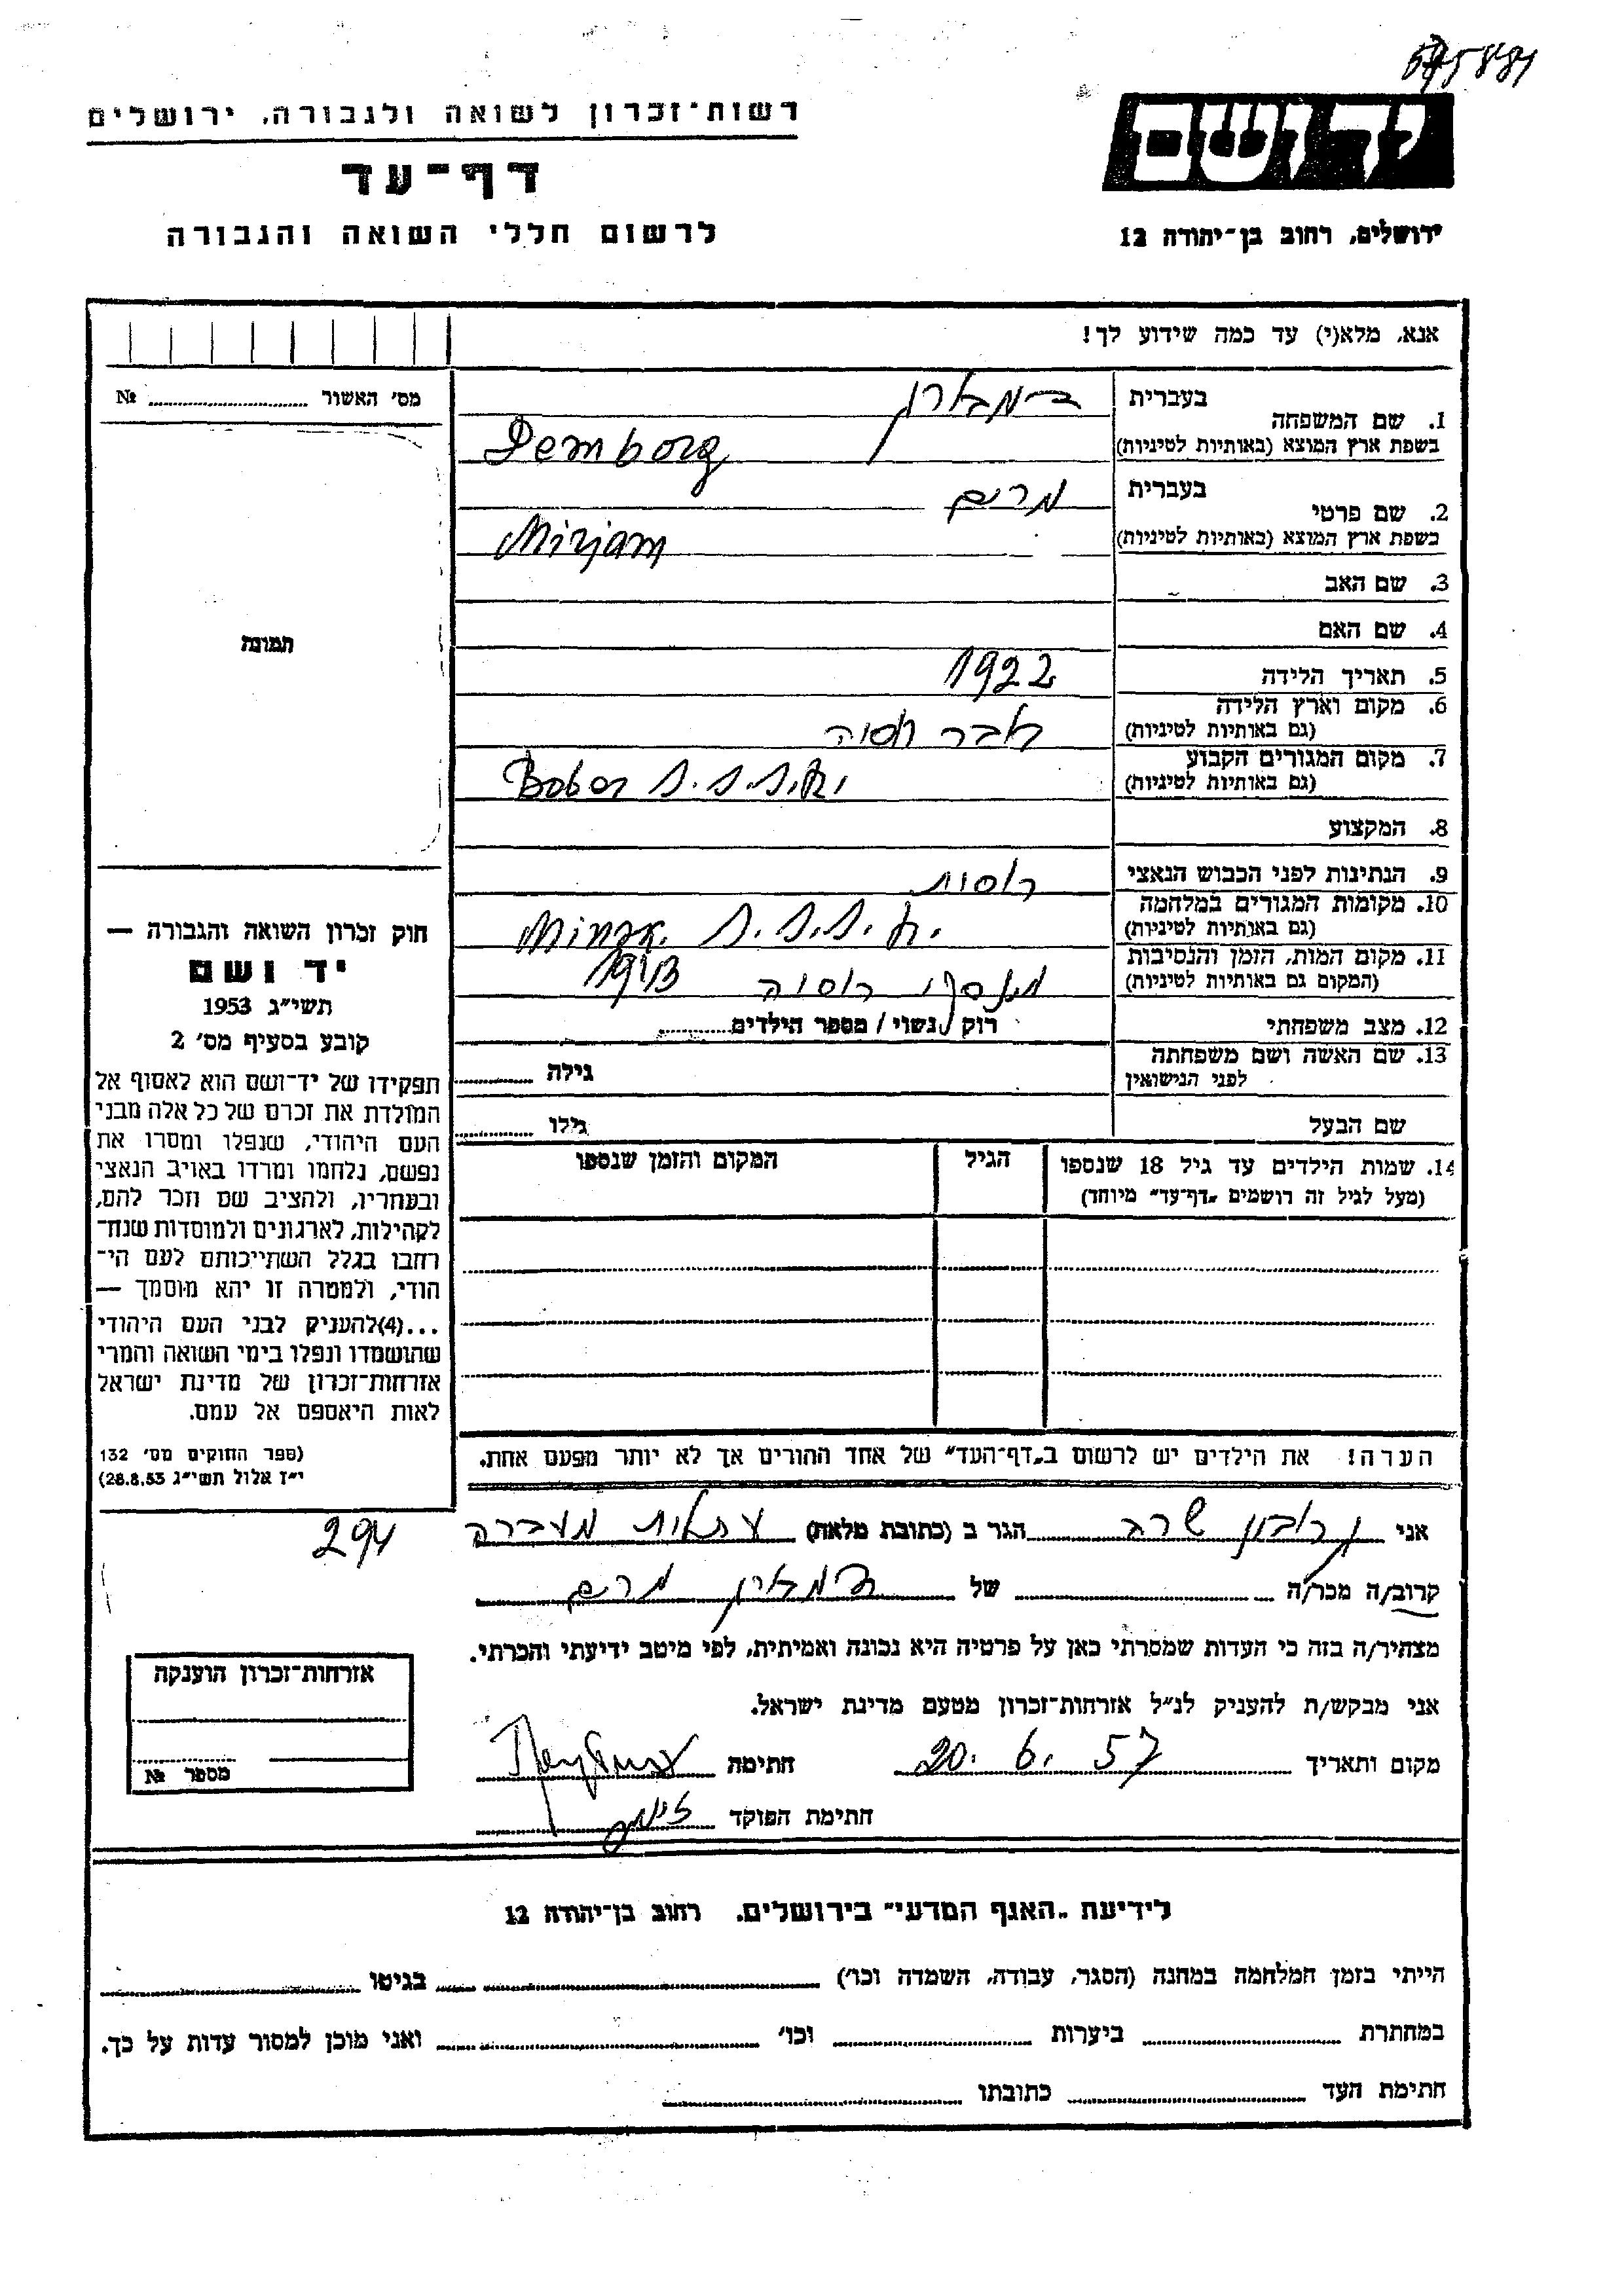 רשות־זכרון לשואה ולגבורה, ירושלים
דף־עד
לרשום חללי השואה והגבורה
יד ושם
ירושלים, רחוב בן־יהודה 12
אנא, מלא(י) עד כמה שידוע לך!
מס' האשור № ............
תמונה
1. שם המשפחה
בעברית
בשפת ארץ המוצא (באותיות לטיניות) Demborg
2. שם פרטי
בעברית מרים
בשפת ארץ המוצא (באותיות לטיניות) Mirjam
3. שם האב
4. שם האם
5. תאריך הלידה 1922
6. מקום וארץ הלידה
(גם באותיות לטיניות) רוסיה
7. מקום המגורים הקבוע
(גם באותיות לטיניות) Bober
8. המקצוע
9. הנתינות לפני הכבוש הנאצי רוסית
10. מקומות המגורים במלחמה
(גם באותיות לטיניות) Minsk.
11. מקום המות, הזמן והנסיבות
(המקום גם באותיות לטיניות) רוסיה 1943
12. מצב משפחתי רווק / נשוי / מספר הילדים............
13. שם האשה ושם משפחתה
לפני הנישואין גילה ............
שם הבעל גילו ............
14. שמות הילדים עד גיל 18 שנספו
(מעל לגיל זה רושמים „דף־עד” מיוחד)
הגיל
המקום והזמן שנספו
הערה! את הילדים יש לרשום ב„דף־העד” של אחד ההורים אך לא יותר מפעם אחת.
חוק זכרון השואה והגבורה —
יד ושם
תשי״ג 1953
קובע בסעיף מס' 2
תפקידו של יד־ושם הוא לאסוף אל
המולדת את זכרם של כל אלה מבני
העם היהודי, שנפלו ומסרו את
נפשם, נלחמו ומרדו באויב הנאצי
ובעוזריו, ולהציב שם וזכר להם,
לקהילות, לארגונים ולמוסדות שנח־
רחבו בגלל השתייכותם לעם הי־
הודי, ולמטרה זו יהא מוסמך —
...(4)להעניק לבני העם היהודי
שהושמדו ונפלו בימי השואה והמרי
אזרחות־זכרון של מדינת ישראל
לאות היאספם אל עמם.
(ספר החוקים מס' 132
י״ז אלול תשי״ג 28.8.53)
294
אני שרה הגר ב (כתובת מלאה) עתלית מעברה
קרוב/ה מכר/ה ............ של מרים
מצהיר/ה בזה כי העדות שמסרתי כאן על פרטיה היא נכונה ואמיתית, לפי מיטב ידיעתי והכרתי.
אני מבקש/ת להעניק לנ״ל אזרחות־זכרון מטעם מדינת ישראל.
מקום ותאריך 20. 6. 57 חתימה
חתימת הפוקד
אזרחות־זכרון הוענקה
מספר №
לידיעת „האגף המדעי” בירושלים, רחוב בן־יהודה 12
הייתי בזמן המלחמה במחנה (הסגר, עבודה, השמדה וכו') ............ בגיטו ............
במחתרת ............ ביערות ............ וכו' ............ ואני מוכן למסור עדות על כך.
חתימת העד ............ כתובתו ............